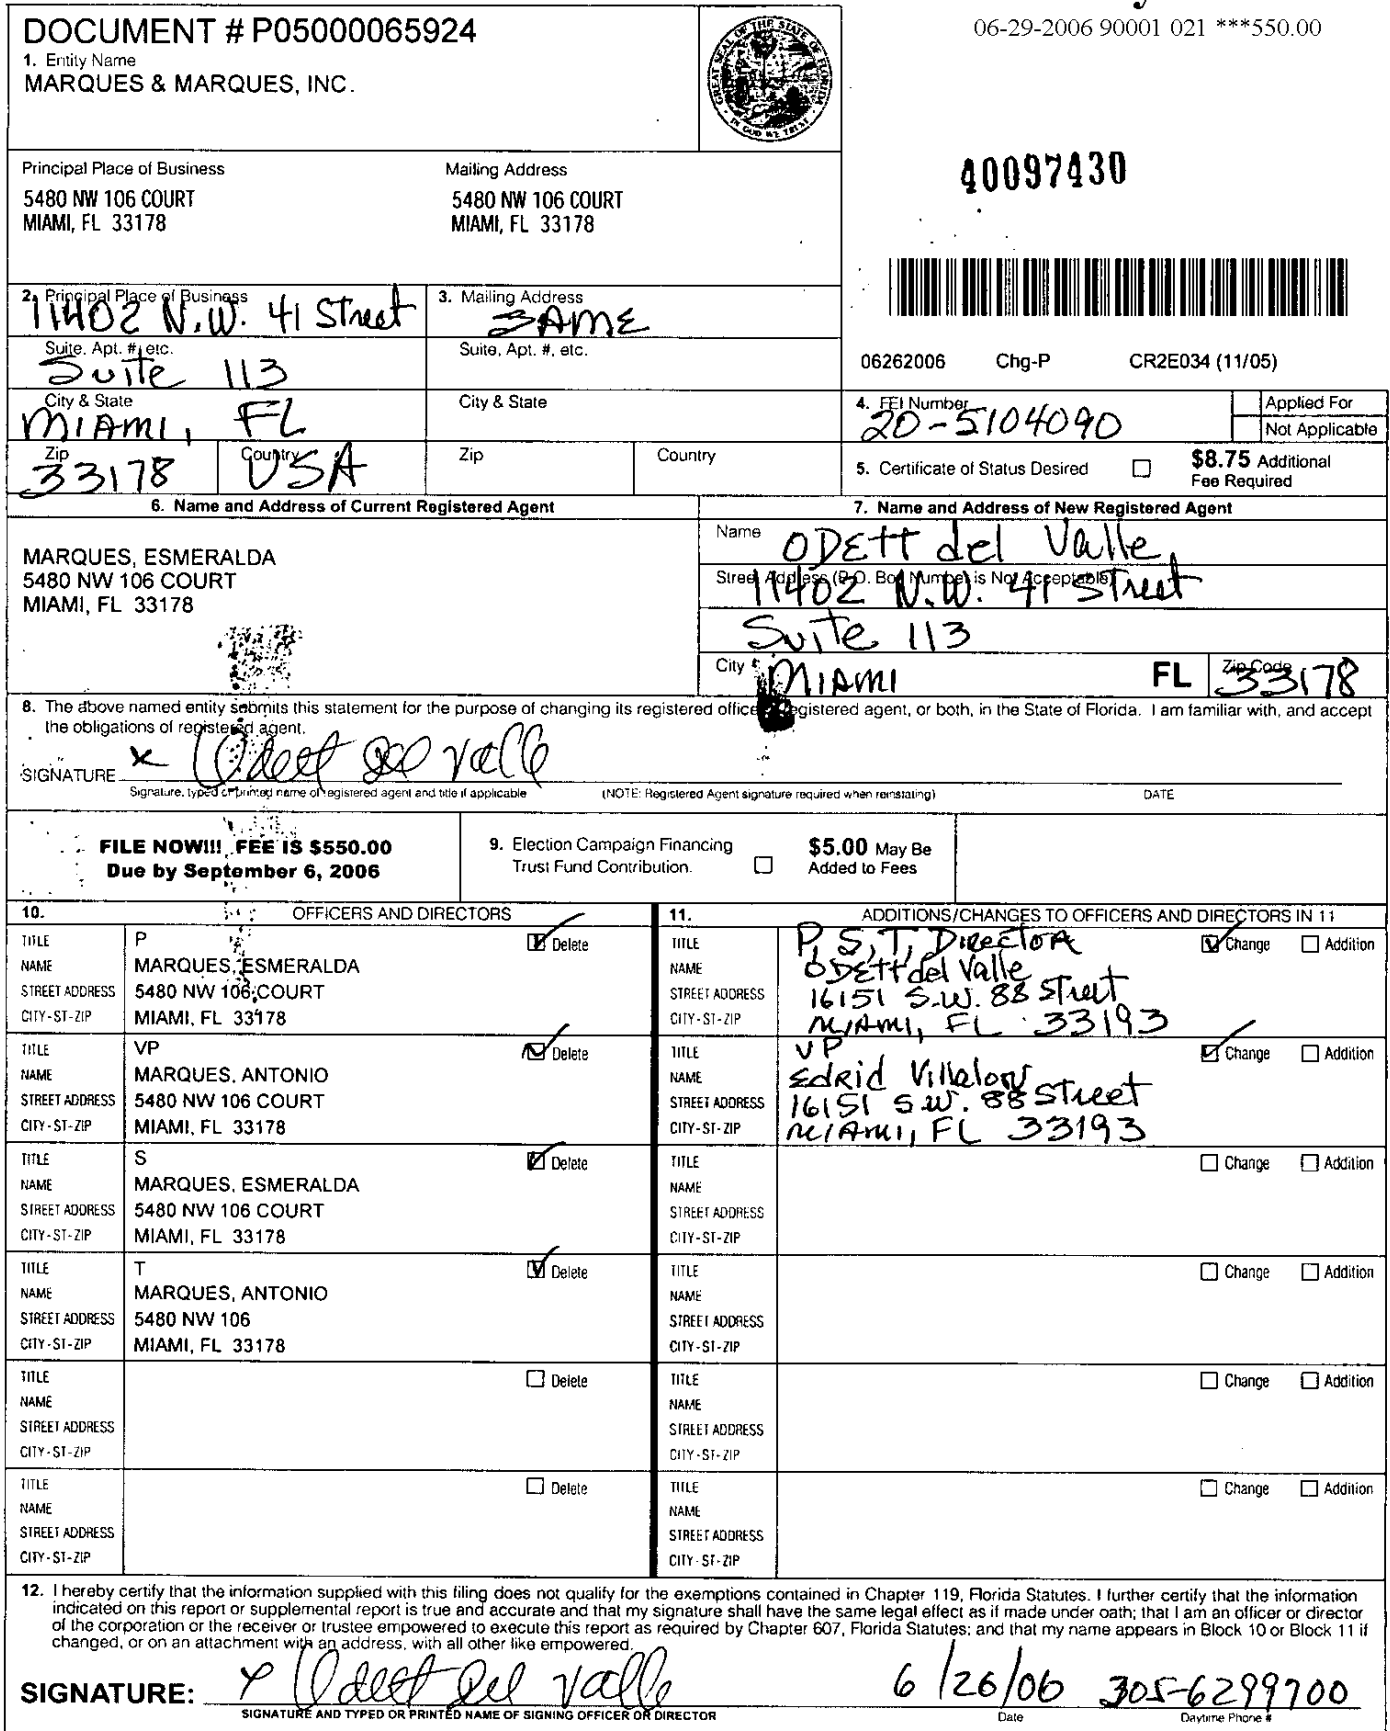 06-29-2006 90001 021 ***550.00
DOCUMENT # P05000065924
1. Entity Name
MARQUES & MARQUES, INC.
GREAT SEAL OF THE STATE OF FLORIDA
IN GOD WE TRUST
40097430
Principal Place of Business
5480 NW 106 COURT
MIAMI, FL 33178
Mailing Address
5480 NW 106 COURT
MIAMI, FL 33178
2. Principal Place of Business
11402 N.W. 41 Street
3. Mailing Address
SAME
Suite, Apt. #, etc.
Suite 113
Suite, Apt. #, etc.
06262006 Chg-P CR2E034 (11/05)
City & State
MIAMI, FL
City & State
4. FEI Number
20-5104090
Applied For
Not Applicable
Zip
33178
Country
USA
Zip
Country
5. Certificate of Status Desired
$8.75 Additional
Fee Required
6. Name and Address of Current Registered Agent
MARQUES, ESMERALDA
5480 NW 106 COURT
MIAMI, FL 33178
7. Name and Address of New Registered Agent
Name ODETT del Valle
Street Address (P.O. Box Number is Not Acceptable)
11402 N.W. 41 Street
Suite 113
City MIAMI FL Zip Code 33178
8. The above named entity submits this statement for the purpose of changing its registered office registered agent, or both, in the State of Florida. I am familiar with, and accept
the obligations of registered agent.
SIGNATURE x Odett del Valle
Signature, typed or printed name of registered agent and title if applicable (NOTE: Registered Agent signature required when reinstating) DATE
FILE NOW!!! FEE IS $550.00
Due by September 6, 2006
9. Election Campaign Financing
Trust Fund Contribution.
$5.00 May Be
Added to Fees
10. OFFICERS AND DIRECTORS
TITLE P Delete
NAME MARQUES, ESMERALDA
STREET ADDRESS 5480 NW 106 COURT
CITY-ST-ZIP MIAMI, FL 33178
TITLE VP Delete
NAME MARQUES, ANTONIO
STREET ADDRESS 5480 NW 106 COURT
CITY-ST-ZIP MIAMI, FL 33178
TITLE S Delete
NAME MARQUES, ESMERALDA
STREET ADDRESS 5480 NW 106 COURT
CITY-ST-ZIP MIAMI, FL 33178
TITLE T Delete
NAME MARQUES, ANTONIO
STREET ADDRESS 5480 NW 106
CITY-ST-ZIP MIAMI, FL 33178
TITLE Delete
NAME
STREET ADDRESS
CITY-ST-ZIP
TITLE Delete
NAME
STREET ADDRESS
CITY-ST-ZIP
11. ADDITIONS/CHANGES TO OFFICERS AND DIRECTORS IN 11
TITLE P, S, T, Director Change Addition
NAME ODETT del Valle
STREET ADDRESS 16151 S.W. 88 Street
CITY-ST-ZIP MIAMI, FL 33193
TITLE VP Change Addition
NAME Edrid Villalon
STREET ADDRESS 16151 S.W. 88 Street
CITY-ST-ZIP MIAMI, FL 33193
TITLE Change Addition
NAME
STREET ADDRESS
CITY-ST-ZIP
TITLE Change Addition
NAME
STREET ADDRESS
CITY-ST-ZIP
TITLE Change Addition
NAME
STREET ADDRESS
CITY-ST-ZIP
TITLE Change Addition
NAME
STREET ADDRESS
CITY-ST-ZIP
12. I hereby certify that the information supplied with this filing does not qualify for the exemptions contained in Chapter 119, Florida Statutes. I further certify that the information
indicated on this report or supplemental report is true and accurate and that my signature shall have the same legal effect as if made under oath; that I am an officer or director
of the corporation or the receiver or trustee empowered to execute this report as required by Chapter 607, Florida Statutes; and that my name appears in Block 10 or Block 11 if
changed, or on an attachment with an address, with all other like empowered.
SIGNATURE: x Odett del Valle 6/26/06 305-6299700
SIGNATURE AND TYPED OR PRINTED NAME OF SIGNING OFFICER OR DIRECTOR Date Daytime Phone #